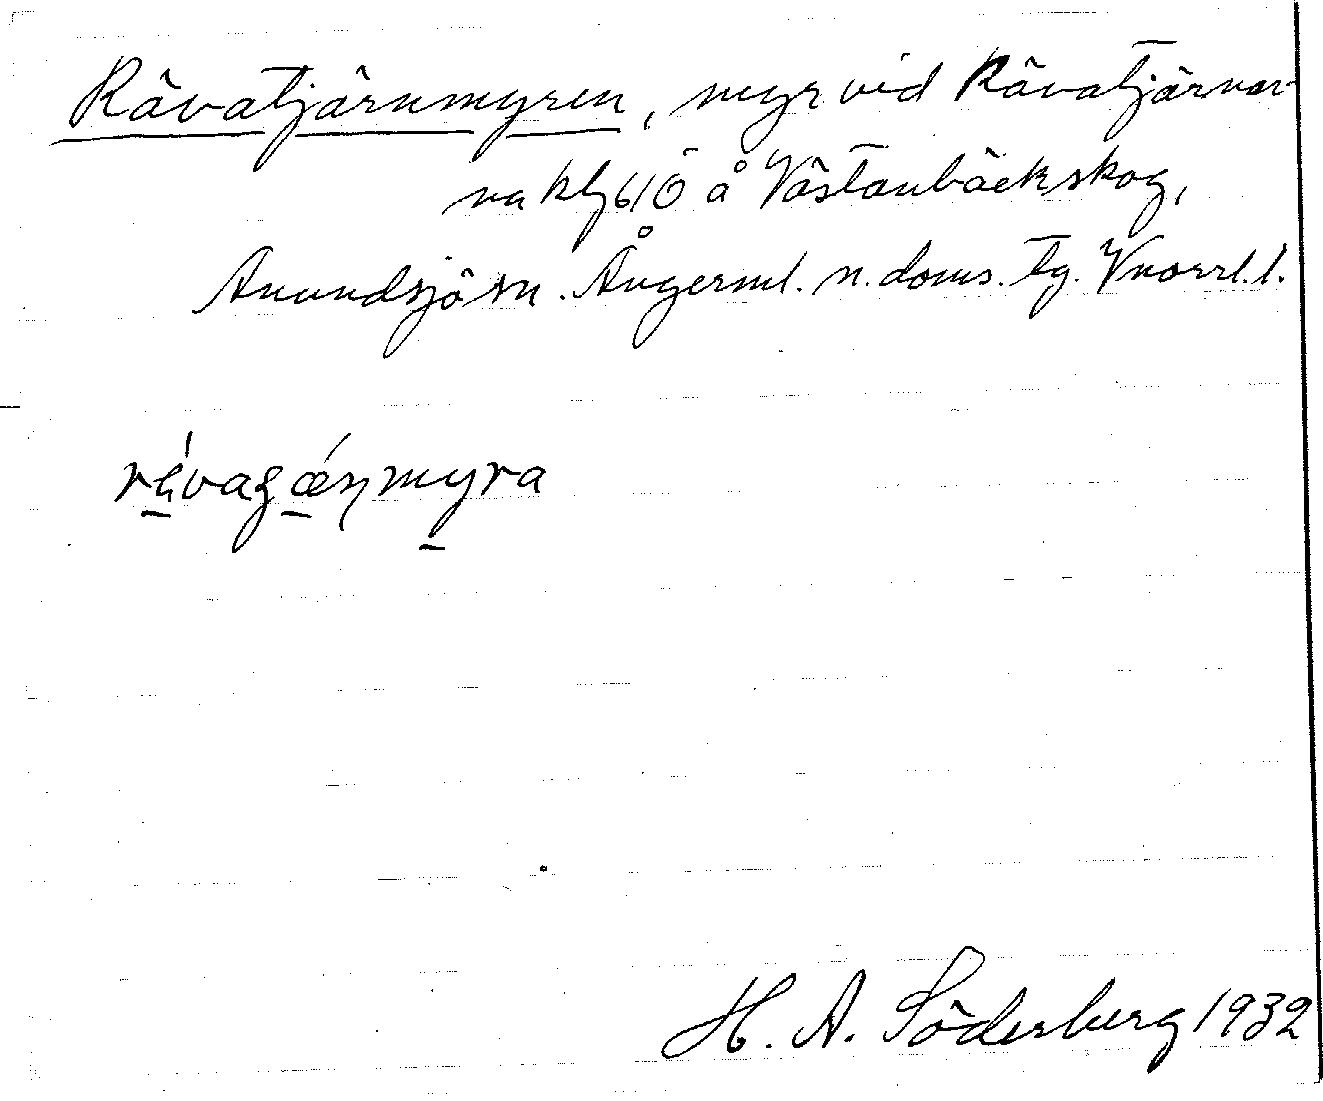 Rävatjärnmyren, myr vid Rävatjärnar-
na klj 61 Ö å Västanbäckskog,
Anundsjö sn. Ångerml. n. doms. tg. Vnorrl. l.
H. A. Söderberg 1932